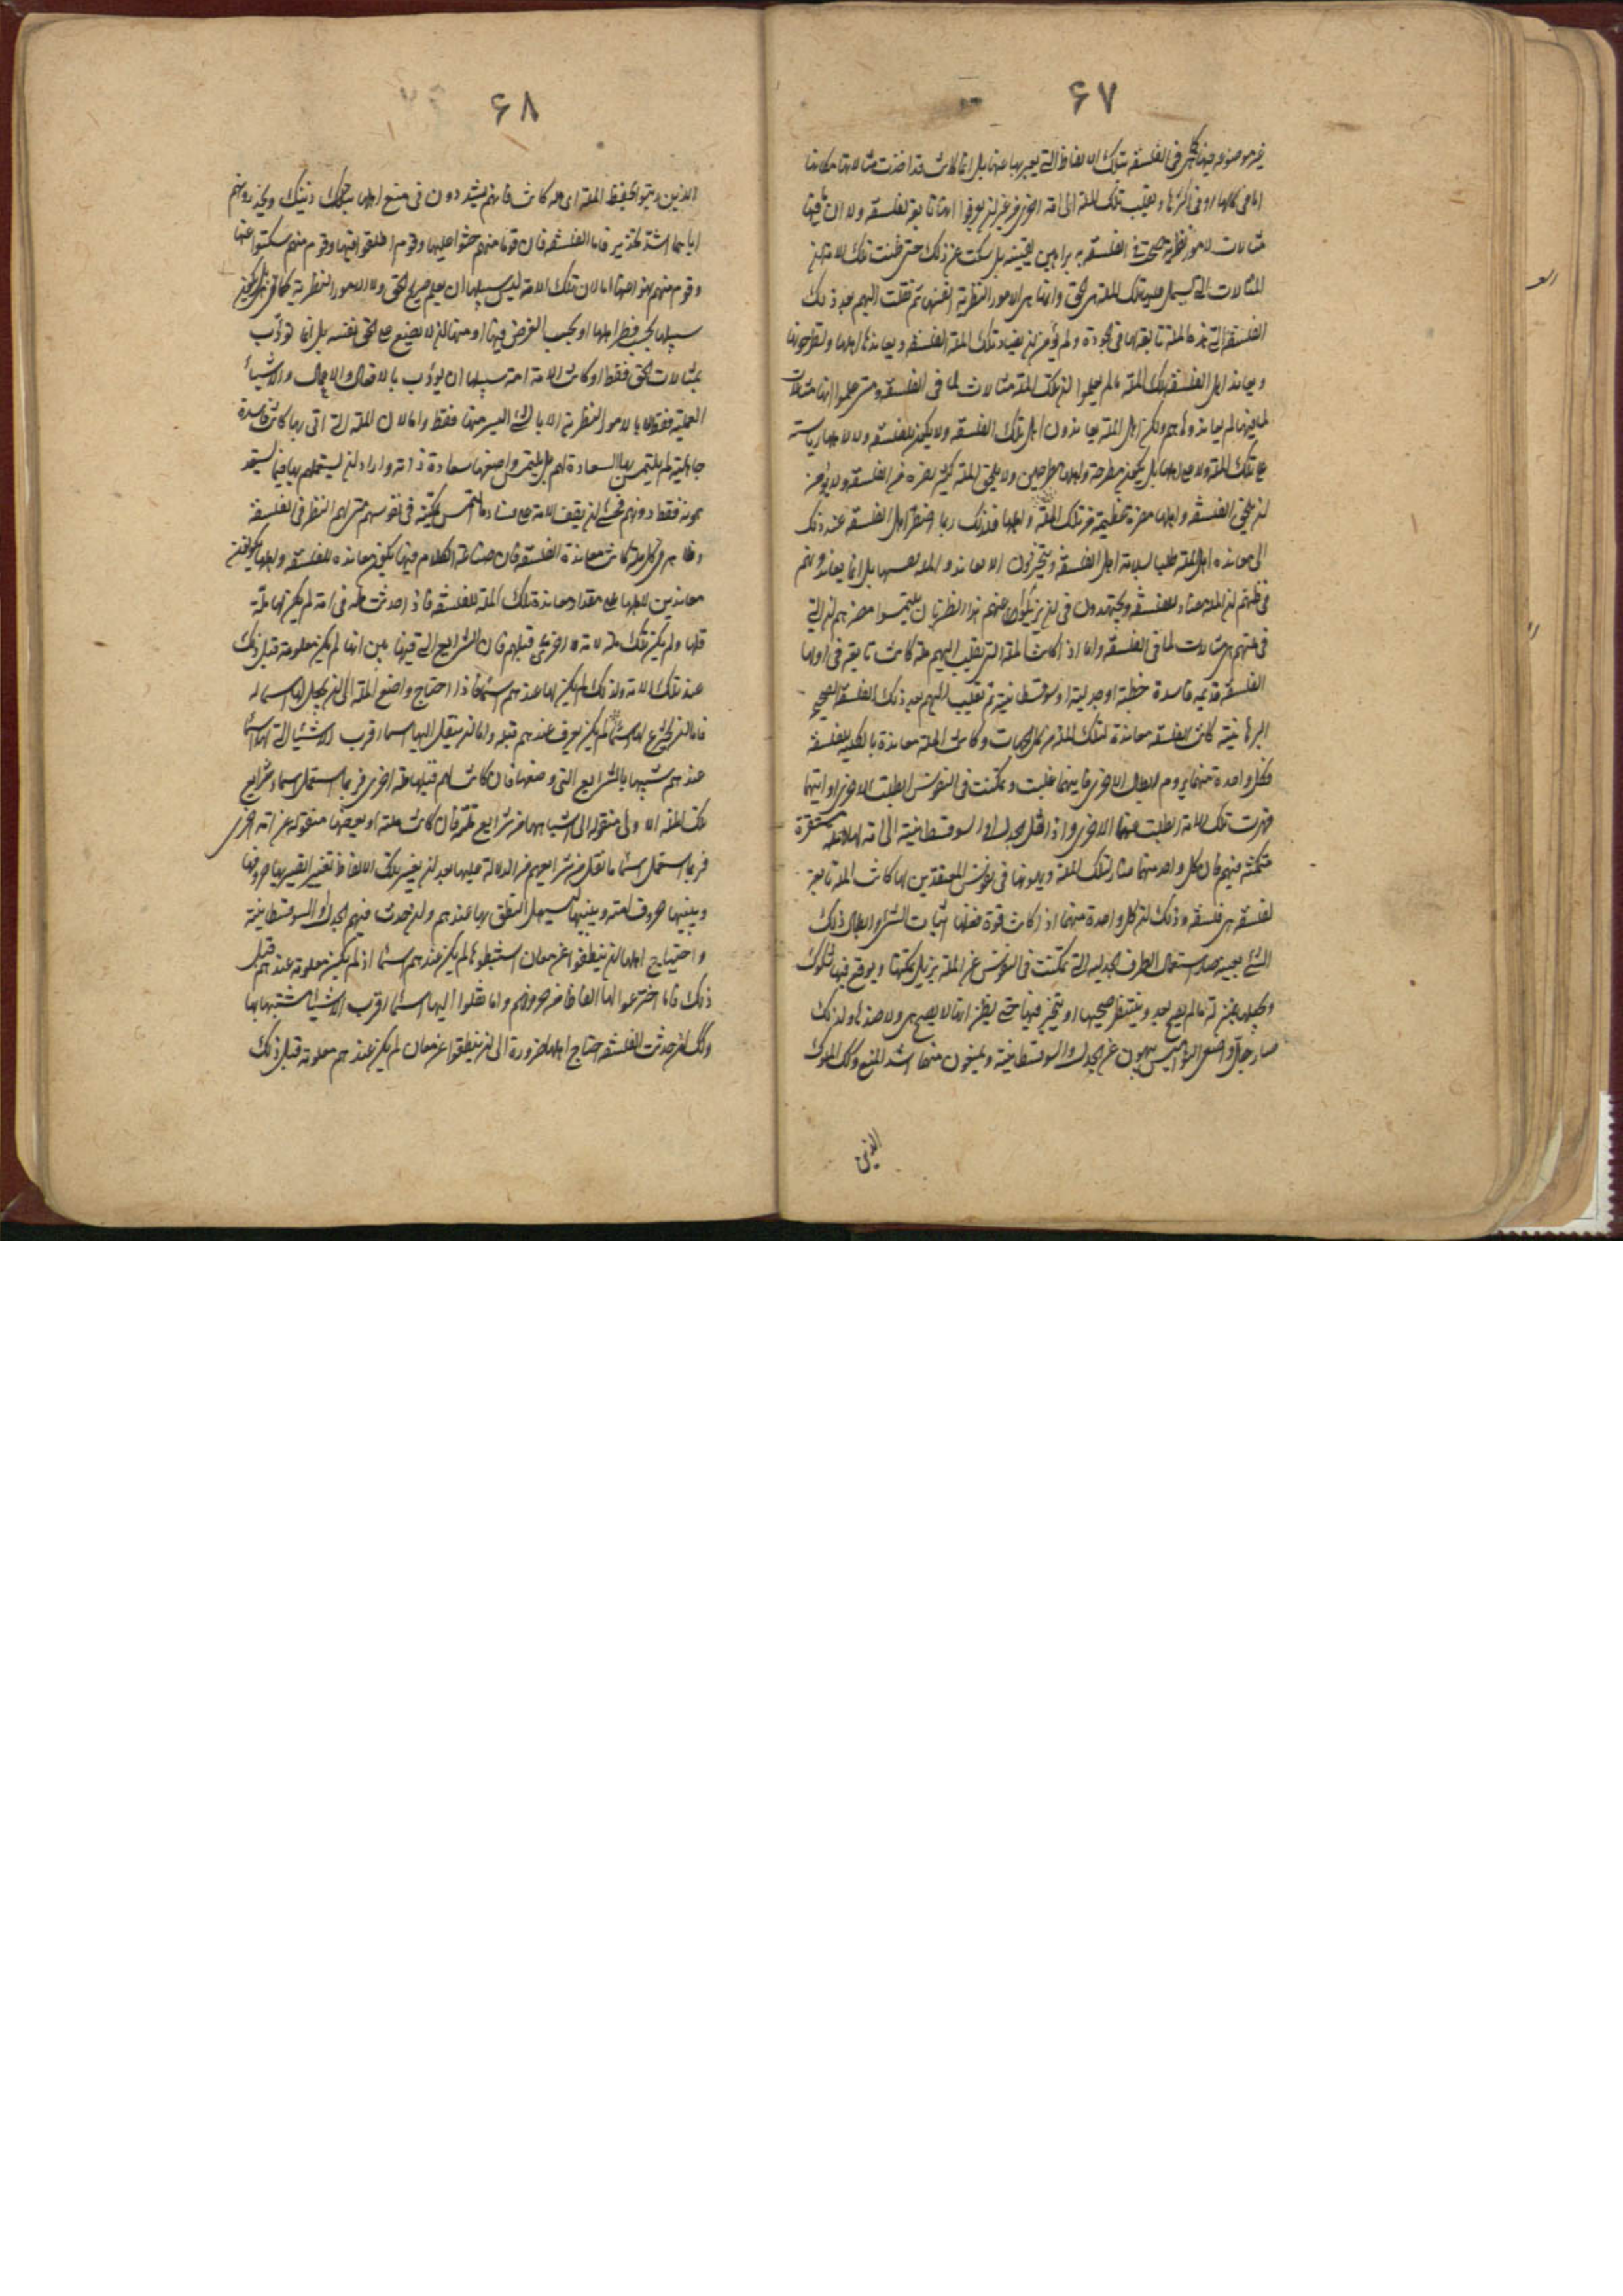 ۶۷
غير موضوعه فيها كما هى فى الفلسفه بتلك الالفاظ التى يعبر بها عنها بل انما كانت قد اخذت مثالاتها مكانها
اما فى كلها او فى اكثرها ونقلت تلك الملة الى امة اخرى من غير ان يعرفوا انها تابعة لفلسفة ولا ان ما فيها
مثالات لامور نظرية صحت فى الفلسفة ببراهين يقينية بل سكت عن ذلك حتى ظنت تلك الامة ان
المثالات التى تشتمل عليها تلك الملة هى الحق وانها هى الامور النظرية انفسها ثم نقلت اليهم بعد ذلك
الفلسفة التى هذه الملة تابعة لها فى الجودة ولم يؤمن ان يضاد تلك الملة الفلسفة ويعاندها اهلها ويطرحونها
ويعاند اهل الفلسفة تلك الملة ما لم يعلموا ان تلك الملة مثالات لما فى الفلسفة ومتى علموا انها مثالات
لما فيها لم يعاندوها هم ولكن اهل الملة يعاندون اهل تلك الفلسفة ولا يكون للفلسفة ولا لاهلها رياسة
على تلك الملة ولا على اهلها بل يكون مطرحة واهلها مطرحين ولا يلحق الملة كثير نصرة من الفلسفة ولا يؤمن
ان يلحق الفلسفة واهلها مضرة عظيمة من تلك الملة واهلها فلذلك ربما اضطر اهل الفلسفة عند ذلك
الى معاندة اهل الملة طلبا لسلامة اهل الفلسفة ويتحرون الا يعاندوا الملة نفسها بل انما يعاندونهم
فى ظنهم ان الملة مضادة للفلسفة ويجتهدون فى ان يزيلوا عنهم هذا الظن بان يلتمسوا تفهيمهم ان التى
فى ملتهم هى مثالات لما فى الفلسفة واما اذا كانت الملة التى نقلت اليهم ملة كانت تابعة فى اولها
الفلسفة قديمه فاسدة خطبية او جدلية او سوفسطائية ثم نقلت اليهم بعد ذلك الفلسفة الصحيحة
البرهانية كانت الفلسفة معاندة لتلك الملة من كل الجهات وكانت الملة معاندة بالكلية للفلسفة
فكل واحدة منهما يروم ابطال الاخرى فايتهما غلبت وتمكنت فى النفوس ابطلت الاخرى او ايتهما
قهرت تلك الامة ابطلت عنها الاخرى واذا نقل الجدل او السوفسطائية الى امة لها ملة مستقرة
متمكنة فيهم فان كل واحد منهما ضار لتلك الملة ويهونها فى نفوس المعتقدين لها كانت الملة تابعة
لفلسفة هى فلسفة وذلك ان كل واحدة منهما اذ كانت قوة فعلها اثبات الشئ او ابطال ذلك
الشئ بعينه صار استعمال الطرق الجدلية التى تمكنت فى النفوس عن الملة يزيل تمكنها ويوقع فيها شكوك
ويجعلها بمنزلة ما لم يصح بعد وينتظر صحتها او يتحير فيها حتى يظن انها لا يصح هى ولا ضدها ولذلك
صار حال واضعى النواميس ينهون عن الجدل والسوفسطائية ويمنعون منهما اشد المنع وكذلك الملوك
الذين
۶۸
الذين رتبوا لحفظ الملة اى ملة كانت فانهم يشددون فى منع اهلها ذينك ويحذرونهم
اياهما اشد تحذير فاما الفلسفة فان قوما منهم حنوا عليها وقوم اطلقوا فيها وقوم منهم سكتوا عنها
وقوم منهم نهوا عنها اما لان تلك الامة ليس سبيلها ان يعلم صريح الحق ولا الامور النظرية كما هى بل يكون
سبيلها بحسب فطر اهلها او بحسب الغرض فيها او منها ان لا يطلع على الحق نفسه بل انما تؤدب
بمثالات الحق فقط او كانت الامة امة سبيلها ان يؤدب بالافعال والاعمال والاشياء
العملية فقط لا بالامور النظرية الا بالشئ اليسير منها فقط واما لان الملة التى اتى بها كانت فاسدة
جاهلية لم يلتمس بها السعادة لهم بل يلتمس واضعها سعادة ذاته واراد ان يستعملهم بها فيما يسعد
هو به فقط دونهم فخشى ان يقف الامة على فسادها وفساد ما التمس تمكينه فى نفوسهم متى اطلق لهم النظر فى الفلسفة
وظاهر فى كل ملة كانت معاندة الفلسفة فان صناعة الكلام فيها يكون معانده للفلسفة واهلها يكونون
معاندين لاهلها على مقدار معاندة تلك الملة للفلسفة فاذا حدثت ملة فى امة لم يكن لها ملة
قبلها ولم يكن تلك ملة لامة اخرى قبلهم فان الشرايع التى فيها بين انها لم يكن معلومة قبل ذلك
عند تلك الامة ولذلك لم يكن لها عندهم اسماء فاذا احتاج واضع الملة الى ان يجعل لها اسماء
فاما ان يخترع لها اسماء لم يكن يعرف عندهم قبله واما ان ينقل اليها اسماء اقرب الاشياء التى لها اسماء
عندهم شبها بالشرايع التى وضعها فان كانت لهم قبلها ملة اخرى فربما استعمل اسماء شرايع
تلك الملة الاولى منقولة الى اشباهها من شرايع ملته فان كانت ملته او بعضها منقولة عن امة اخرى
فربما استعمل اسماء ما نقل من شرايعهم فى الدلالة عليها بعد ان يغير تلك الالفاظ تغييرا يصير بها حروفها
وبنيتها حروف امته وبنيتها ليسهل النطق بها عندهم وان حدث فيهم الجدل او السوفسطائية
واحتياج اهلها ان ينطقوا عن معان استنبطوها لم يكن عندهم اسماء اذ لم يكن معلومة عندهم قبل
ذلك فاما اخترعوا لها الفاظا من حروفهم واما نقلوا اليها اسماء اقرب الاشياء شبها بها
وكذلك ان حدثت الفلسفة احتاج اهلها ضرورة الى ان ينطقوا عن معان لم يكن عندهم معلومة قبل ذلك